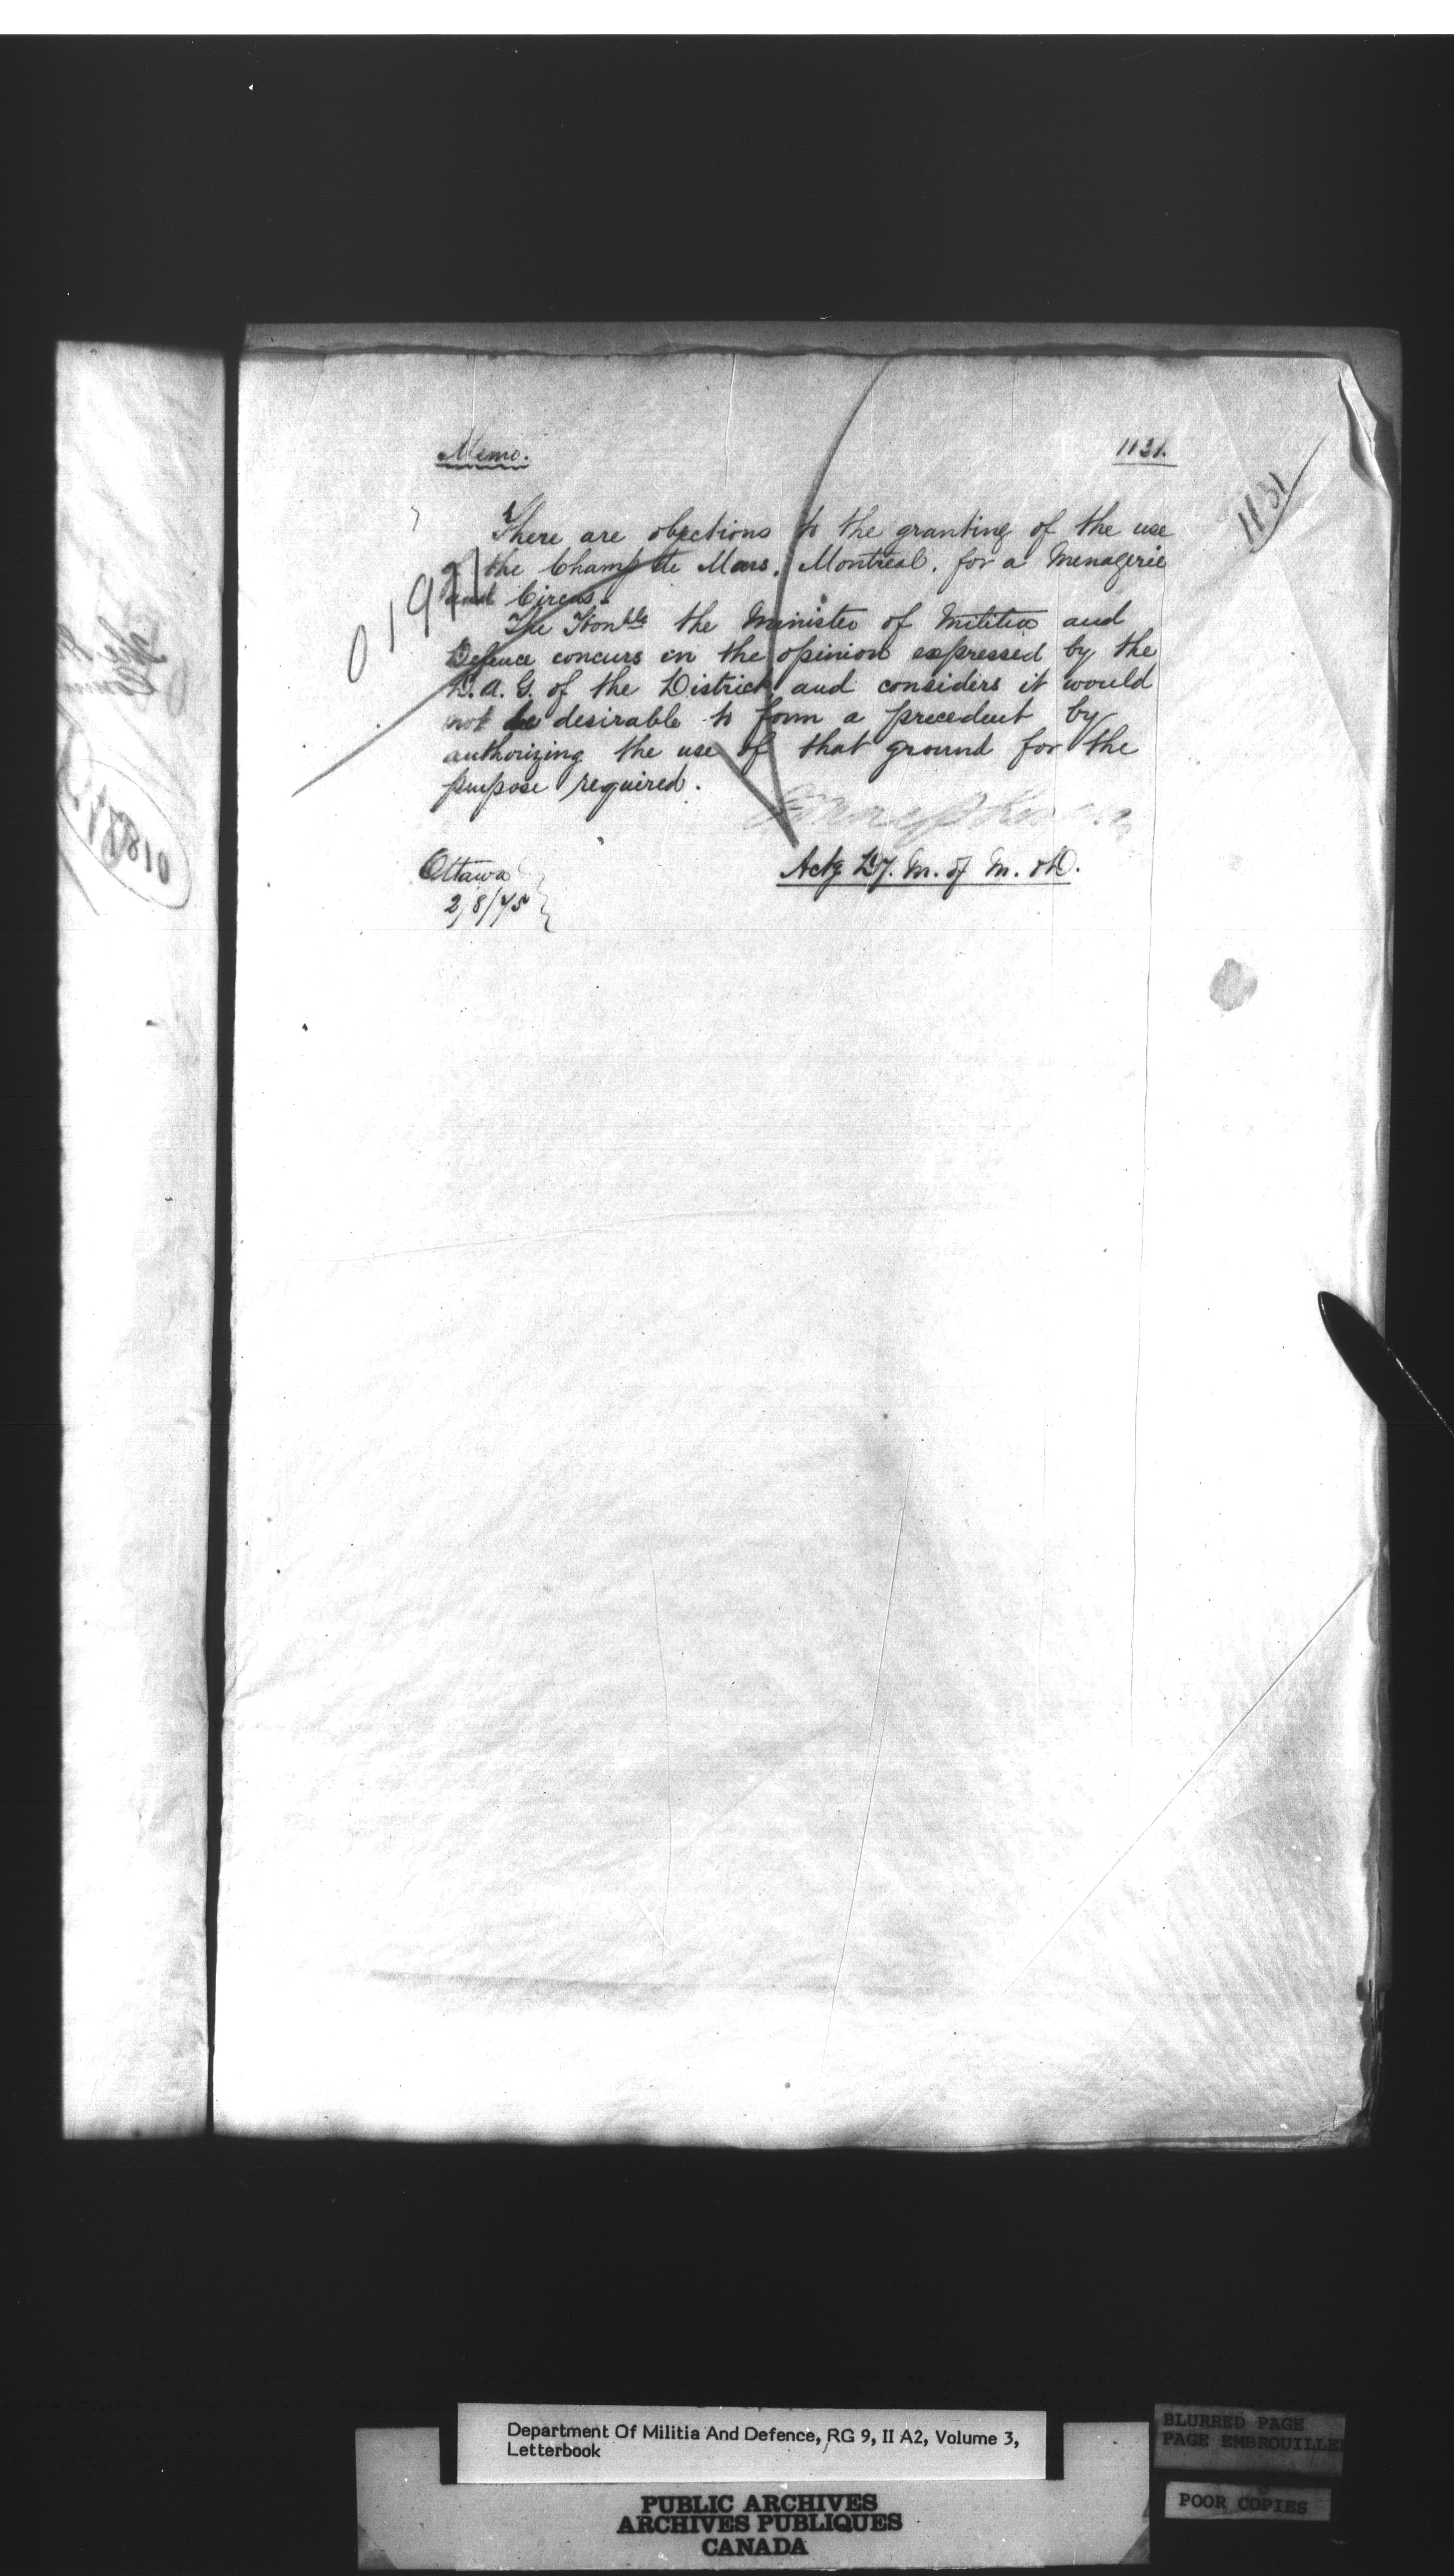 Memo.
1131.
1131
There are obections to the granting of the use
of the Champ de Mars, Montreal, for a Menagerie
and Circus.
The Honble the Minister of Militia and
Defence concurs in the opinion expressed by the
D.A.G. of the District, and considers it would
not be desirable to form a precedent by
authorizing the use of that ground for the
purpose required.
Actg Dy. M. of M. & D.
Ottawa
2/8/75
Department Of Militia And Defence, RG 9, II A2, Volume 3,
Letterbook
BLURRED PAGE
PAGE EMBROUILLE
POOR COPIES
PUBLIC ARCHIVES
ARCHIVES PUBLIQUES
CANADA